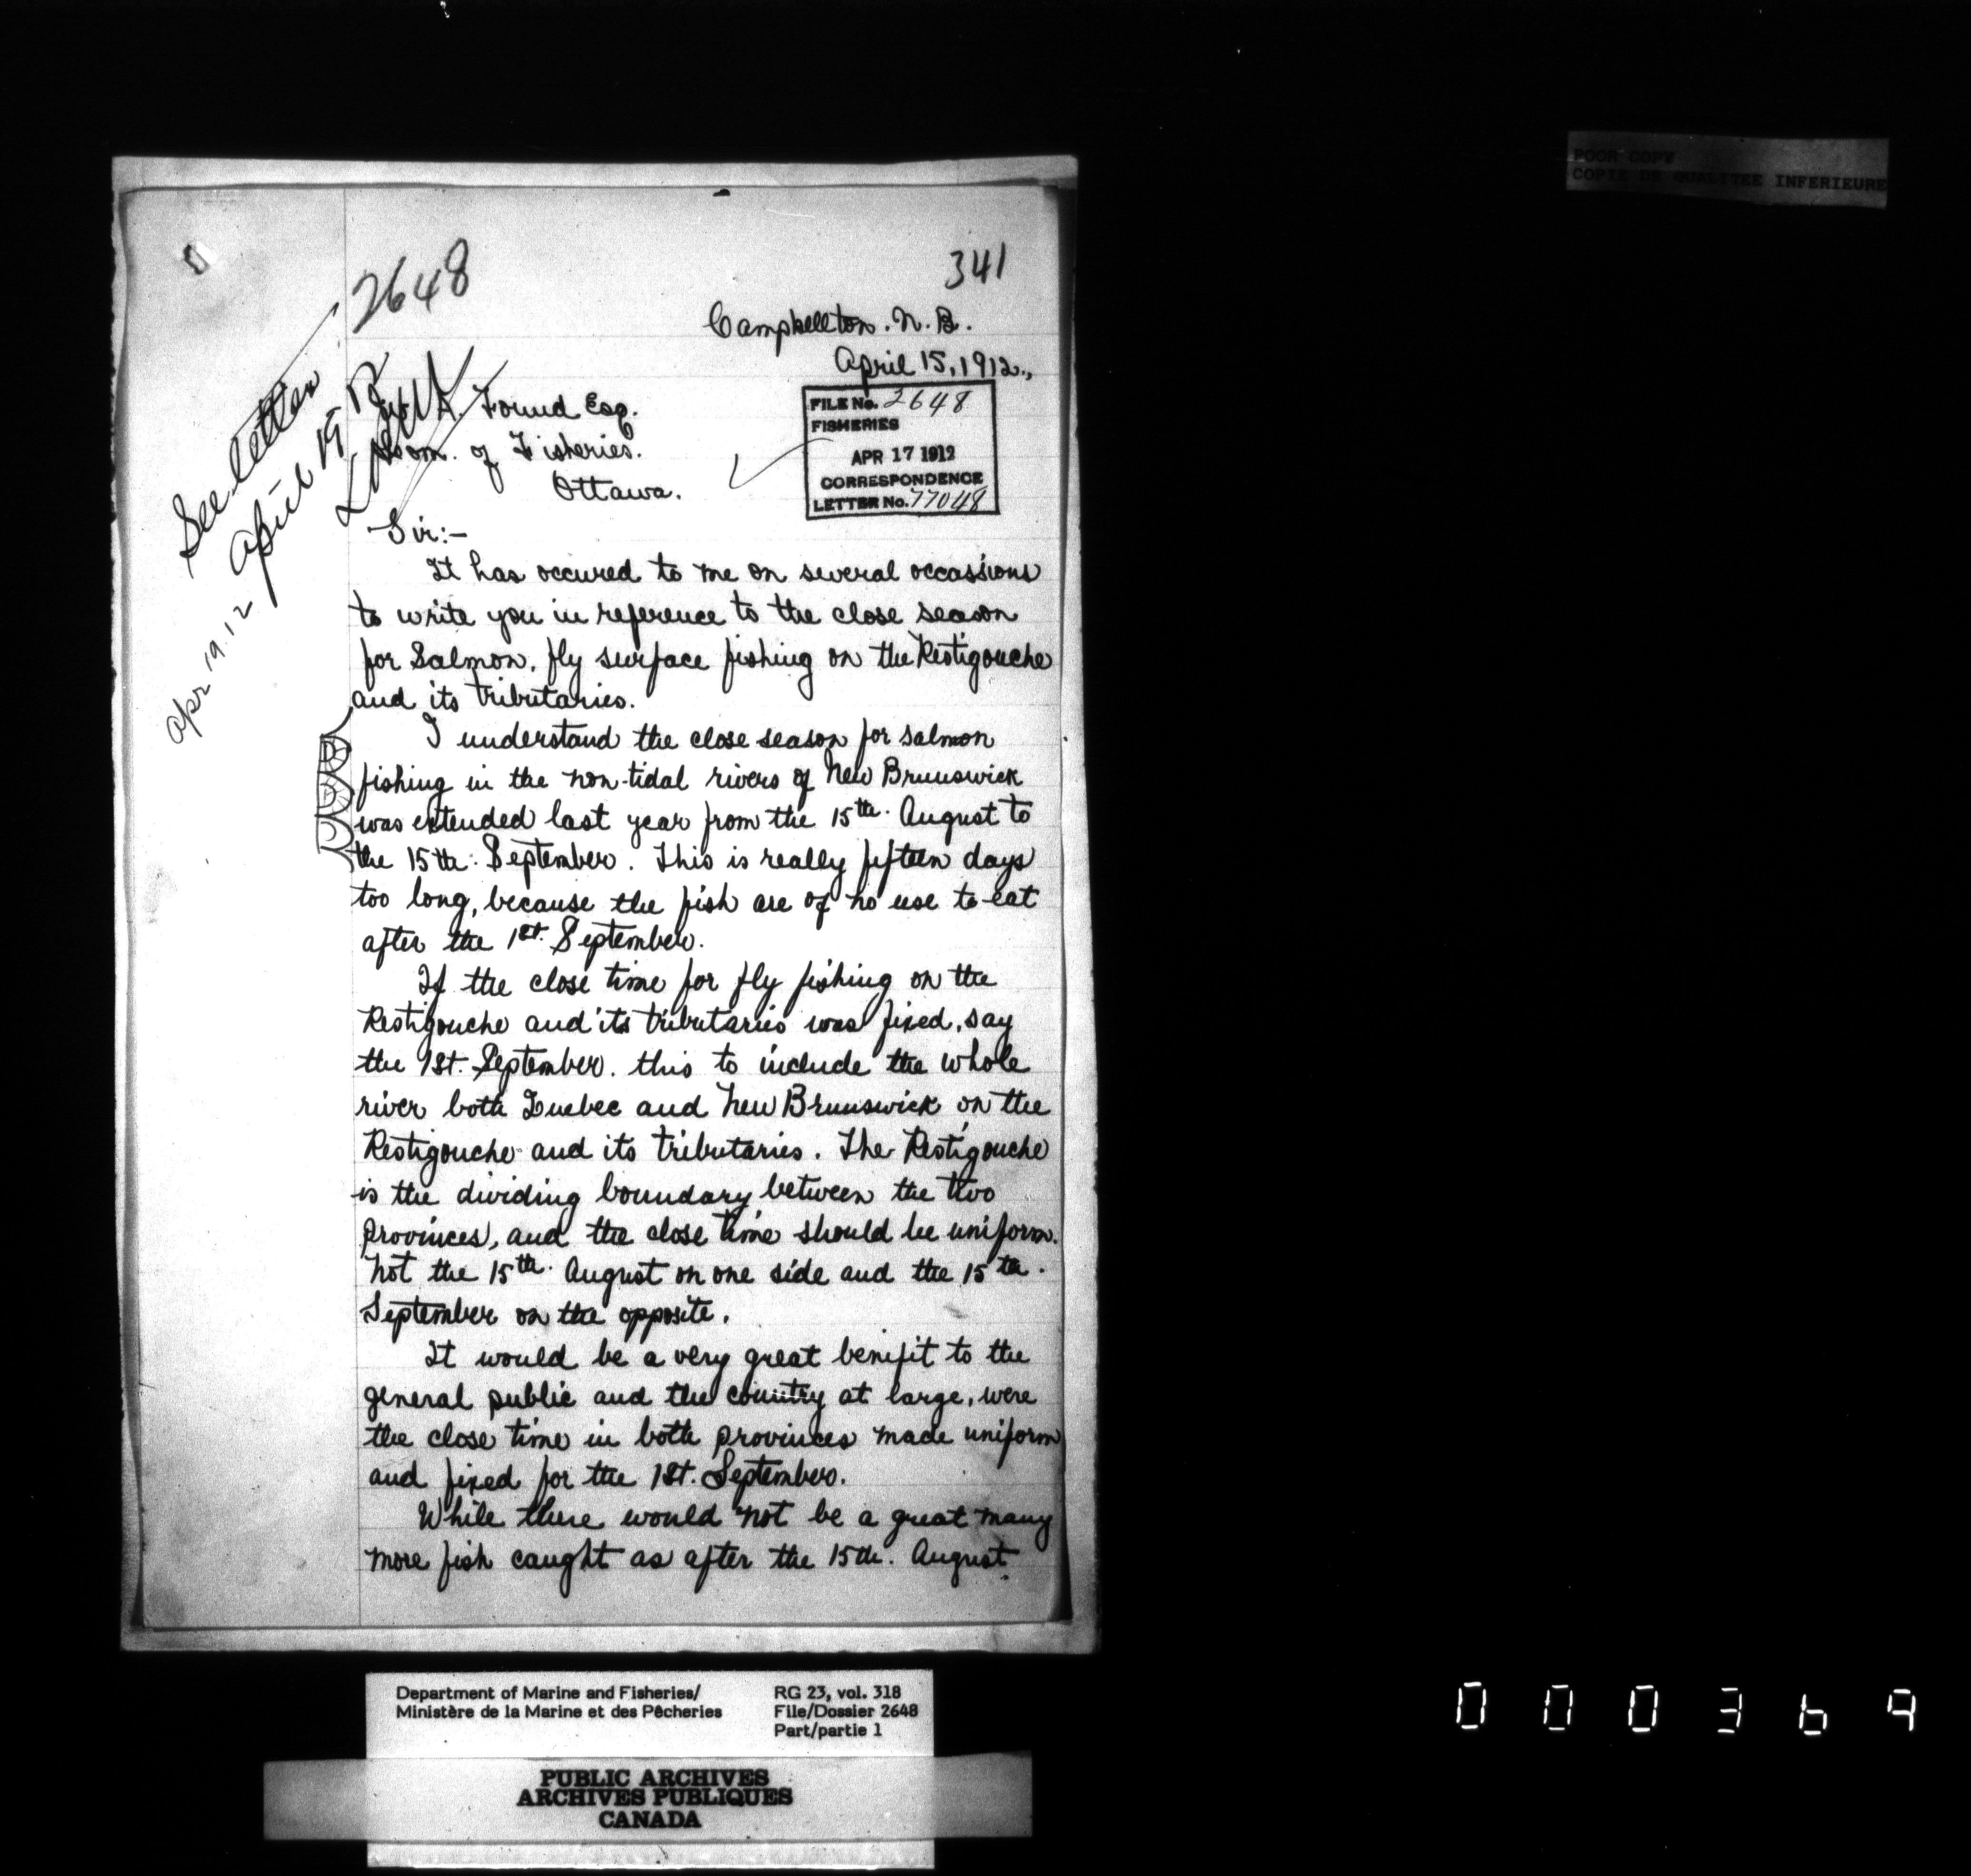 POOR COPY
COPIE DE QUALITEE INFERIEURE
2648
341
Campbellton. N. B.
April 15, 1912.,
See letter
April 19
Apr 19. 12
FILE No. 2648
FISHERIES
APR 17 1912
CORRESPONDENCE
LETTER No. 77048
A. Found Esq.
Com. of Fisheries.
Ottawa.
Sir:-
It has occured to me on several occassions
to write you in reference to the close season
for Salmon, fly surface fishing on the Restigouche
and its tributaries.
I understand the close season for salmon
fishing in the non-tidal rivers of New Brunswick
was extended last year from the 15th. August to
the 15th. September. This is really fifteen days
too long, because the fish are of no use to eat
after the 1st. September.
If the close time for fly fishing on the
Restigouche and its tributaries was fixed, say
the 1st. September. this to include the whole
river both Quebec and New Brunswick on the
Restigouche and its tributaries. The Restigouche
is the dividing boundary between the two
provinces, and the close time should be uniform.
not the 15th. August on one side and the 15th.
September on the opposite.
It would be a very great benifit to the
general public and the country at large, were
the close time in both provinces made uniform
and fixed for the 1st. September.
While there would not be a great many
more fish caught as after the 15th. August
Department of Marine and Fisheries/
Ministère de la Marine et des Pêcheries
RG 23, vol. 318
File/Dossier 2648
Part/partie 1
PUBLIC ARCHIVES
ARCHIVES PUBLIQUES
CANADA
000369